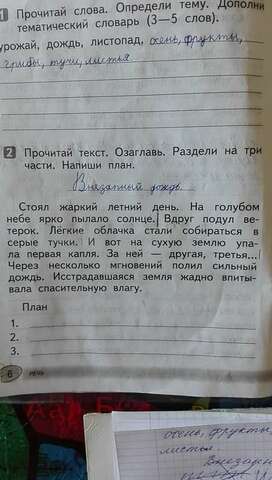 1 Прочитай слова. Определи тему. Дополни
тематический словарь (3—5 слов).
урожай, дождь, листопад, осень, фрукты,
грибы, тучи, листья
2 Прочитай текст. Озаглавь. Раздели на три
части. Напиши план.
Внезапный дождь.
Стоял жаркий летний день. На голубом
небе ярко пылало солнце. Вдруг подул ве-
терок. Лёгкие облачка стали собираться в
серые тучки. И вот на сухую землю упа-
ла первая капля. За ней — другая, третья...
Через несколько мгновений полил сильный
дождь. Исстрадавшаяся земля жадно впиты-
вала спасительную влагу.
План
1.
2.
3.
6
осень, фрукты
листья.
Внезапн